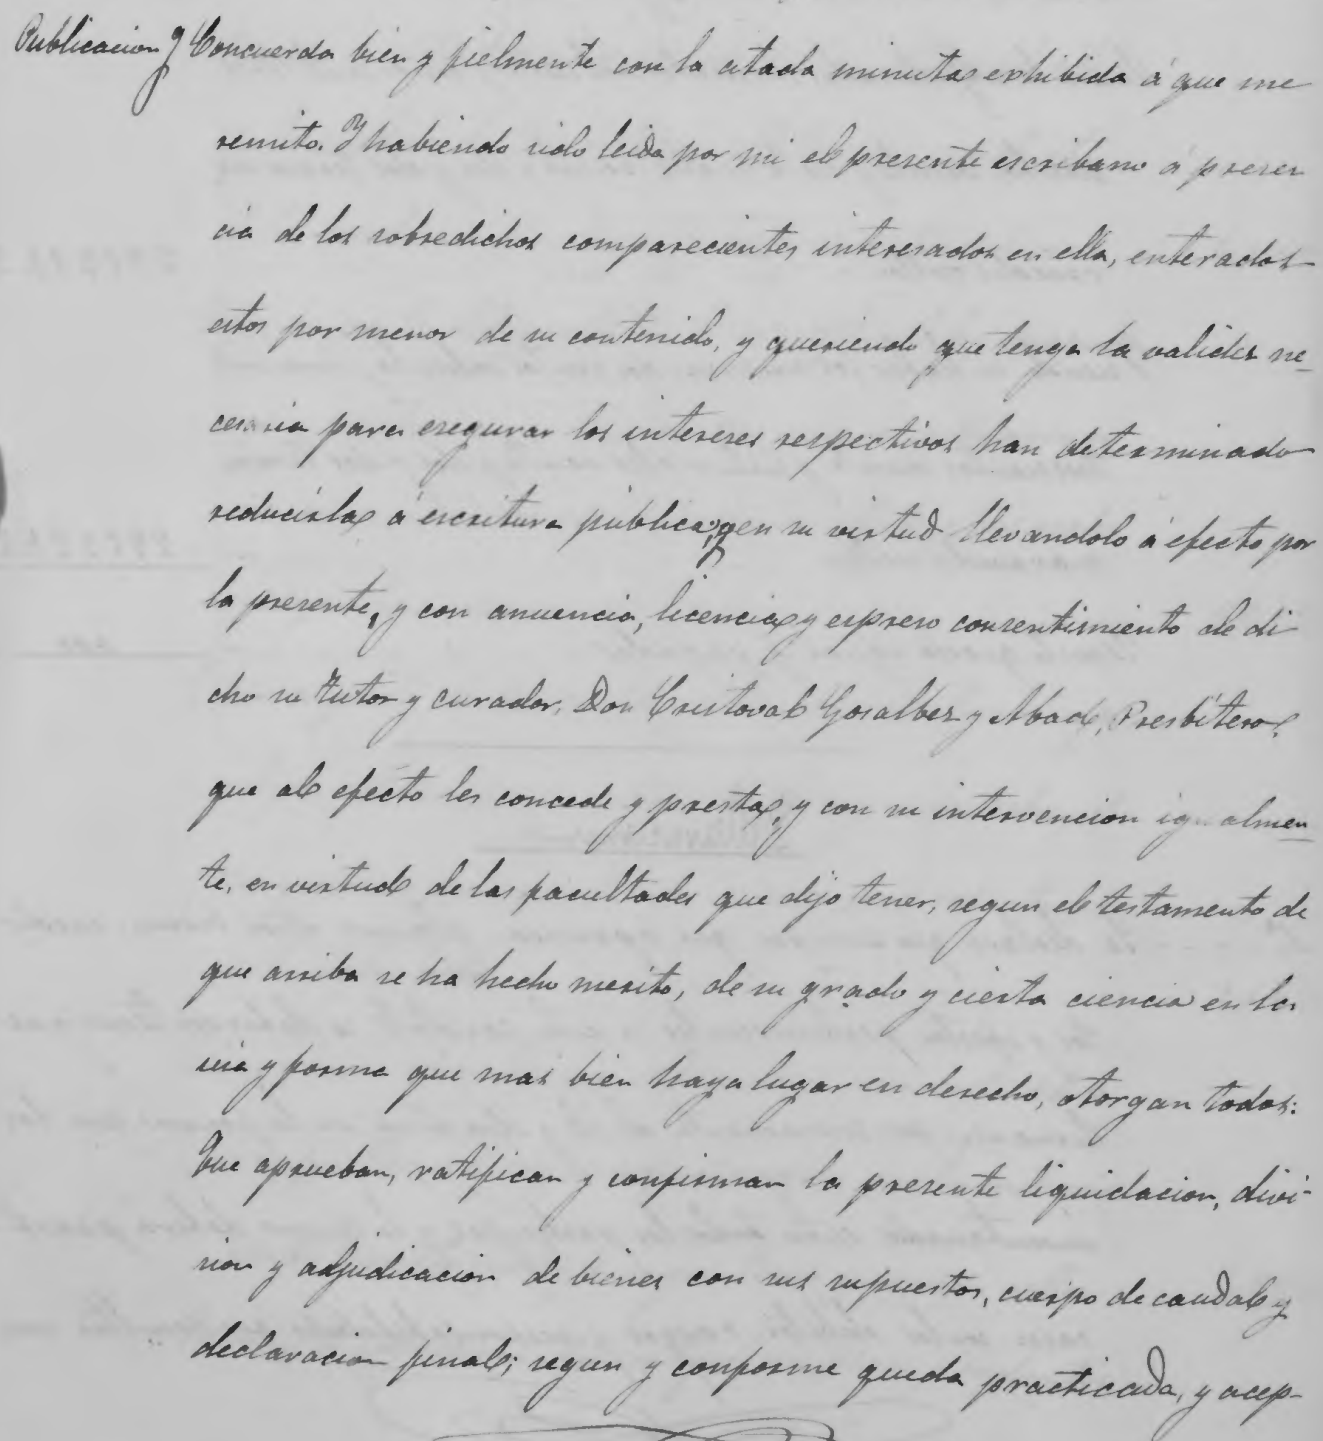 Publicacion y Concuerda bien y fielmente con la citada minuta exhibida á que me
remito. Y habiendo sido leida por mi el presente escribano á presen
cia de los sobredichos comparecientes interesados en ella, enterados
estos por menor de su contenido, y queriendo que tenga la validez ne_
cesaria para asegurar los intereses respectivos han determinado
reducirla á escritura pública; y en su virtud llevandolo á efecto por
la presente, y con anuencia, licencia y espreso consentimiento de di
cho su tutor y curador, Don Cristoval Gosalbez y Abad, Presbítero,
que al efecto les concede y presta, y con su intervencion igualmen_
te, en virtud de las facultades que dijo tener, segun el testamento de
que arriba se ha hecho merito, de su grado y cierta ciencia en la
via y forma que mas bien haya lugar en derecho, otorgan todos:
Que aprueban, ratifican y confirman la presente liquidacion, divi-
sion y adjudicacion de bienes con sus supuestos, cuerpo de caudal y
declaracion final; segun y conforme queda practicada, y acep-